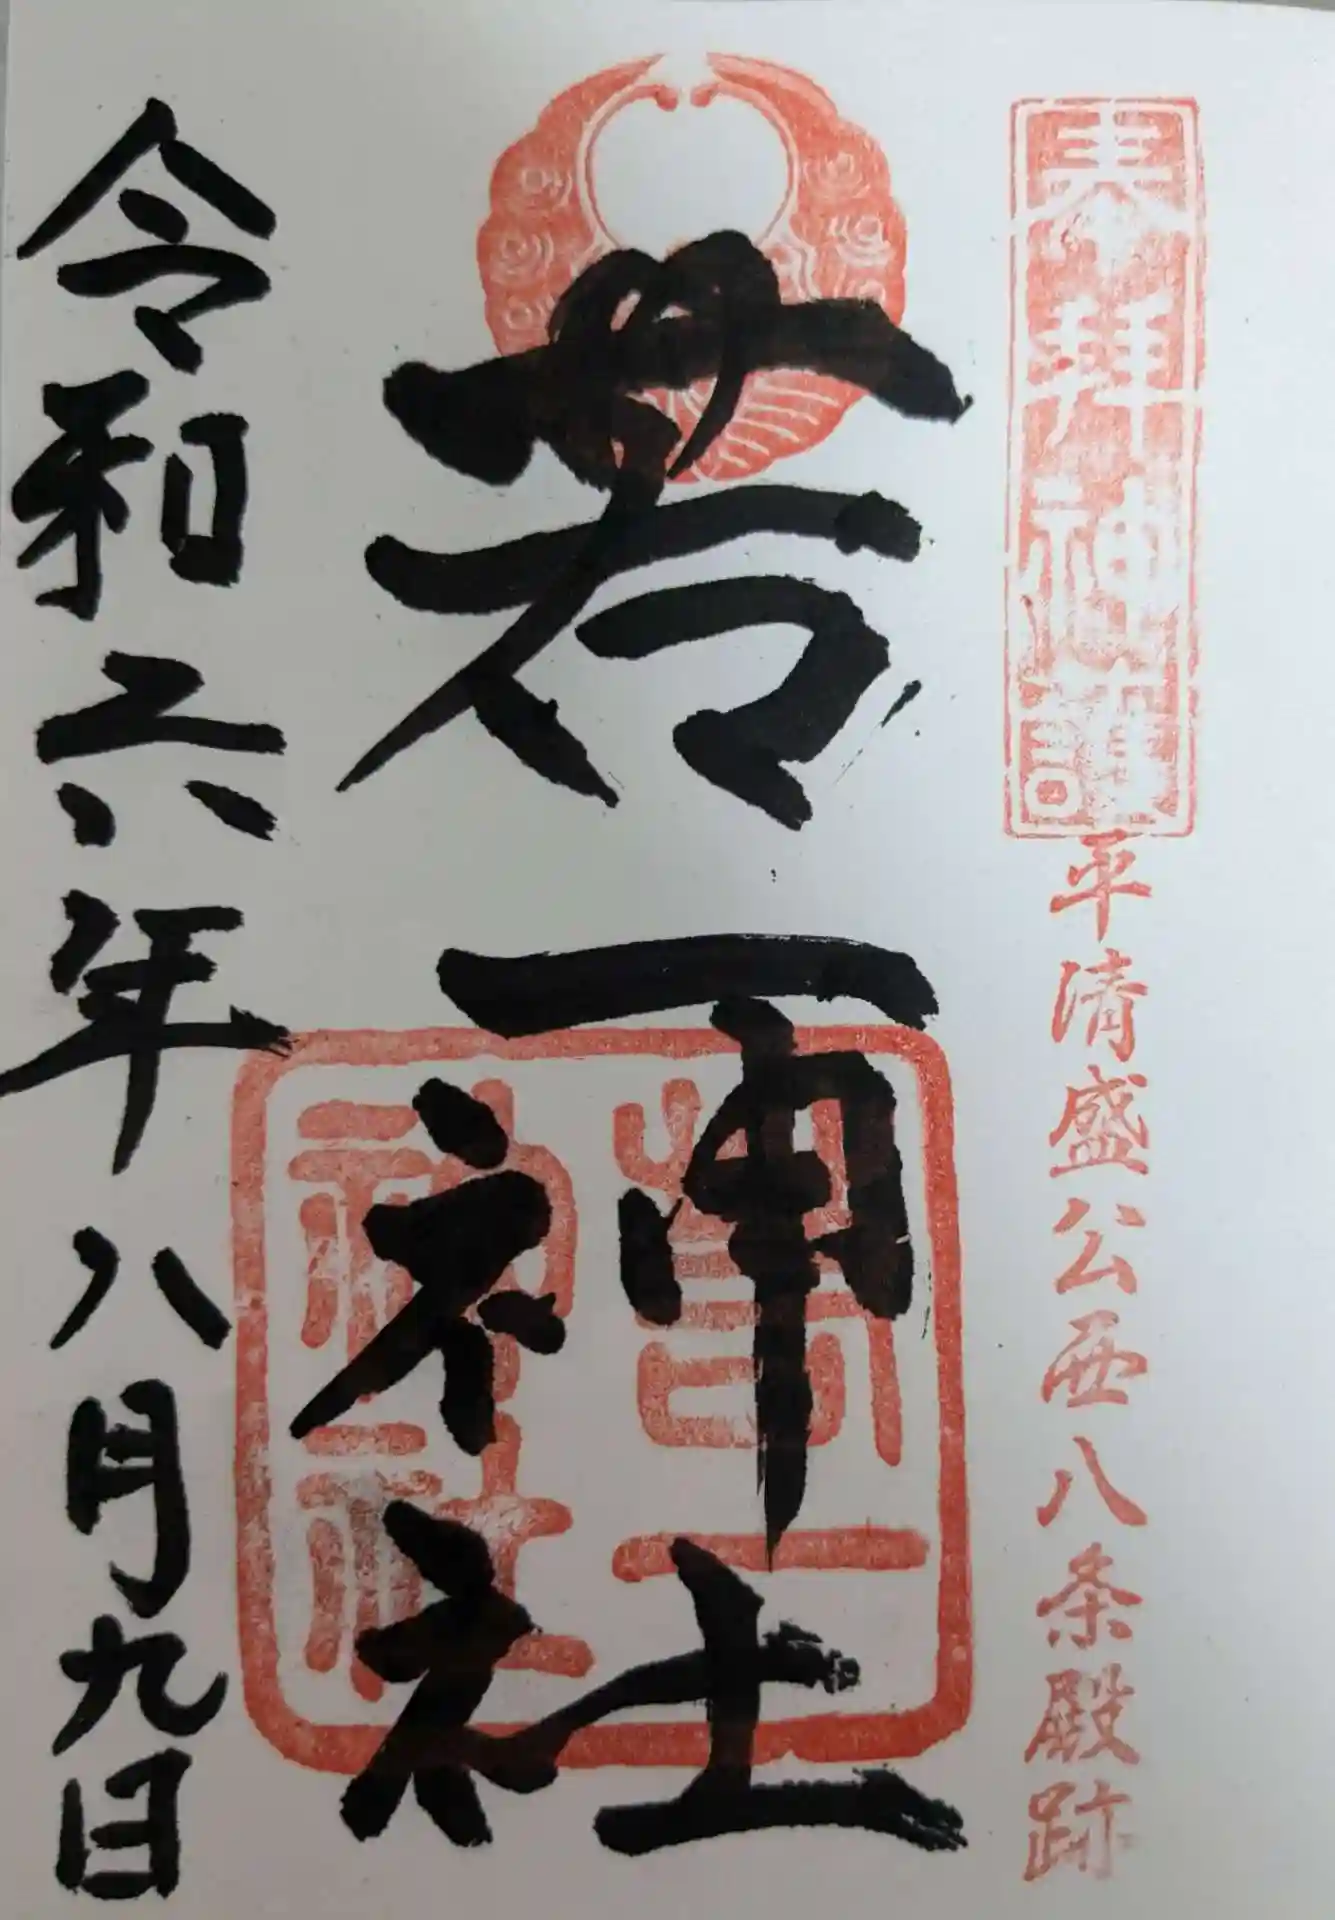 奉拝神護
平清盛公西八条殿跡
若一神社
若一
神社
令和六年八月九日